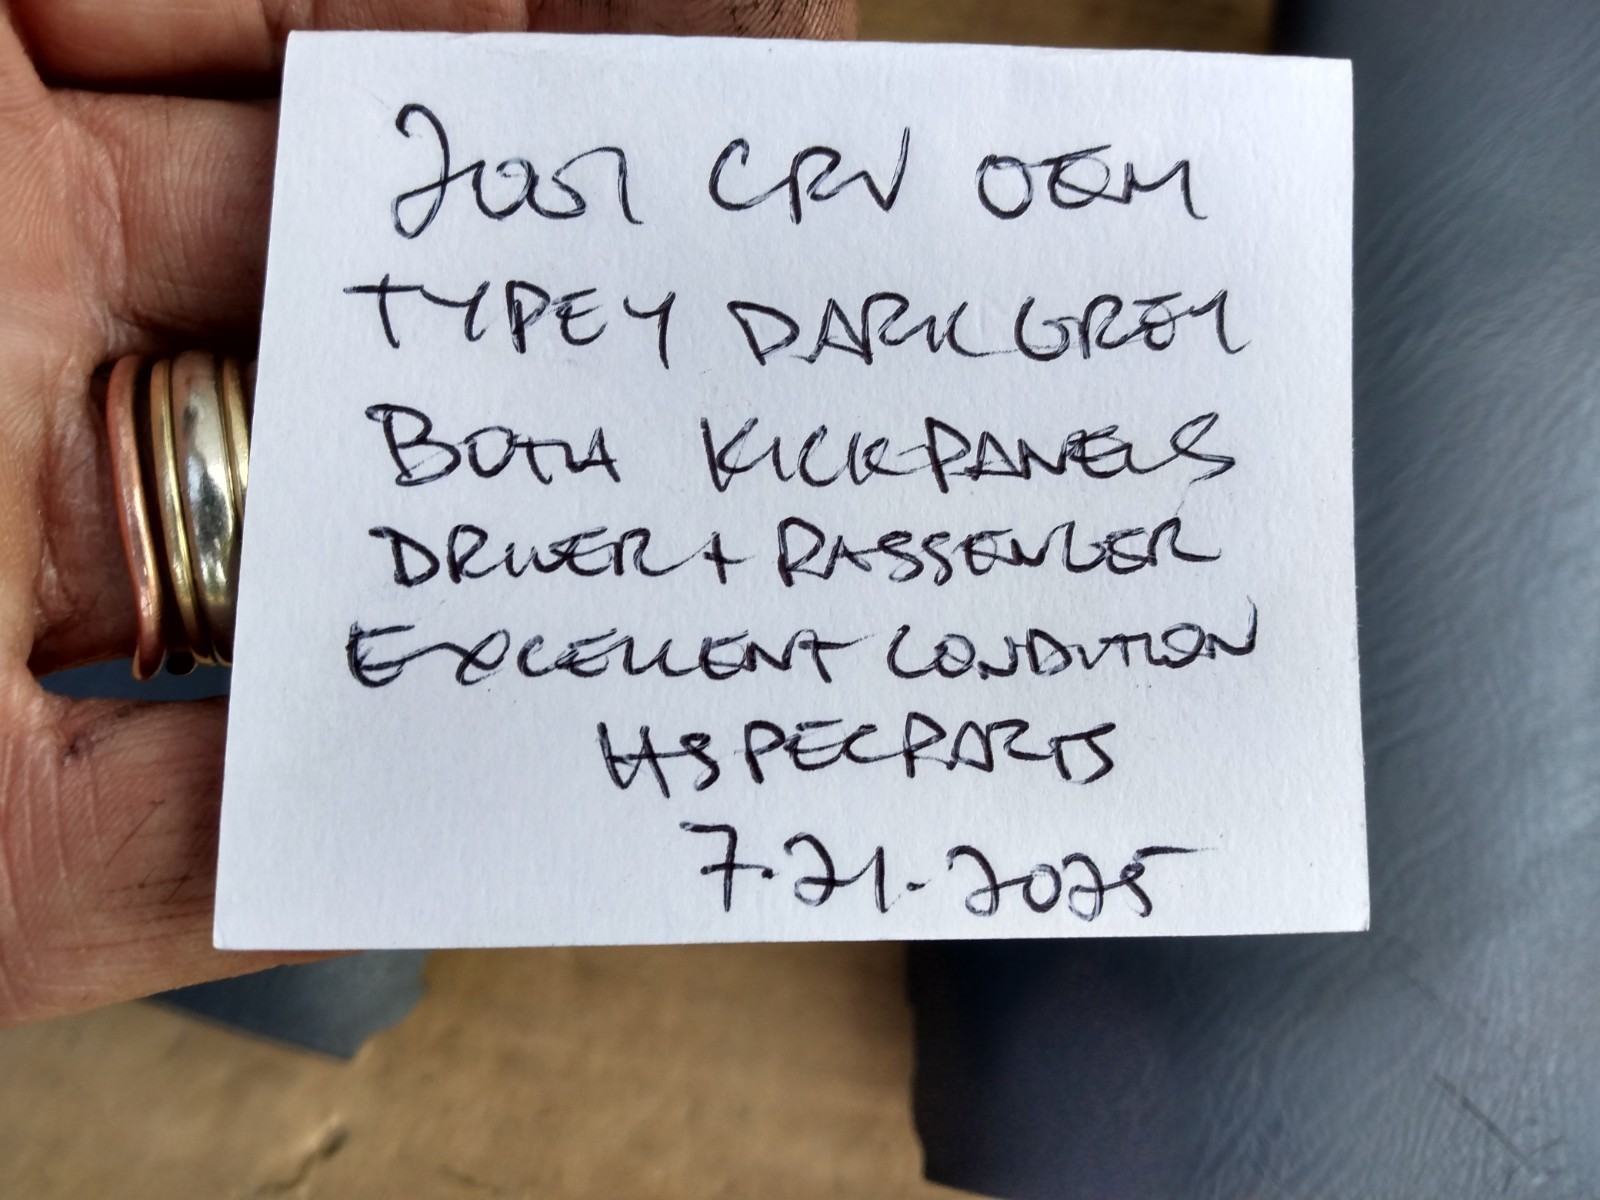 2001 CRV OEM
TYPEY DARK GREY
BOTH KICKPANELS
DRIVER + PASSENGER
EXCELLENT CONDITION
HSPECPARTS
7.21.2025